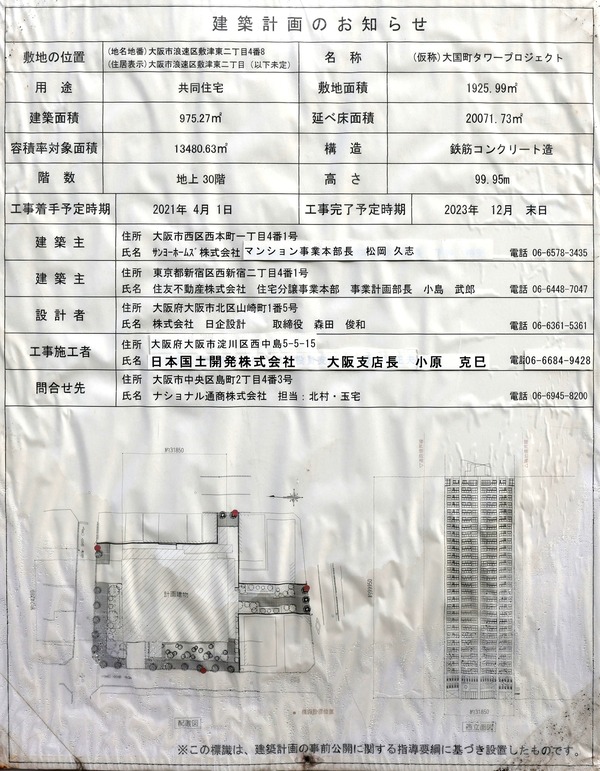 建築計画のお知らせ
敷地の位置
(地名地番)大阪市浪速区敷津東二丁目4番8
(住居表示)大阪市浪速区敷津東二丁目(以下未定)
名称
(仮称)大国町タワープロジェクト
用途
共同住宅
敷地面積
1925.99㎡
建築面積
975.27㎡
延べ床面積
20071.73㎡
容積率対象面積
13480.63㎡
構造
鉄筋コンクリート造
階数
地上30階
高さ
99.95m
工事着手予定時期
2021年 4月 1日
工事完了予定時期
2023年 12月 末日
建築主
住所 大阪市西区西本町一丁目4番1号
氏名 サンヨーホームズ株式会社 マンション事業本部長 松岡 久志 電話 06-6578-3435
建築主
住所 東京都新宿区西新宿二丁目4番1号
氏名 住友不動産株式会社 住宅分譲事業本部 事業計画部長 小島 武郎 電話 06-6448-7047
設計者
住所 大阪府大阪市北区山崎町1番5号
氏名 株式会社 日企設計 取締役 森田 俊和 電話 06-6361-5361
工事施工者
住所 大阪府大阪市淀川区西中島5-5-15
氏名 日本国土開発株式会社 大阪支店長 小原 克巳 電話06-6684-9428
問合せ先
住所 大阪市中央区島町2丁目4番3号
氏名 ナショナル通商株式会社 担当:北村・玉宅 電話 06-6945-8200
約31850
計画建物
配置図
約31850
西立面図
※この標識は、建築計画の事前公開に関する指導要綱に基づき設置したものです。